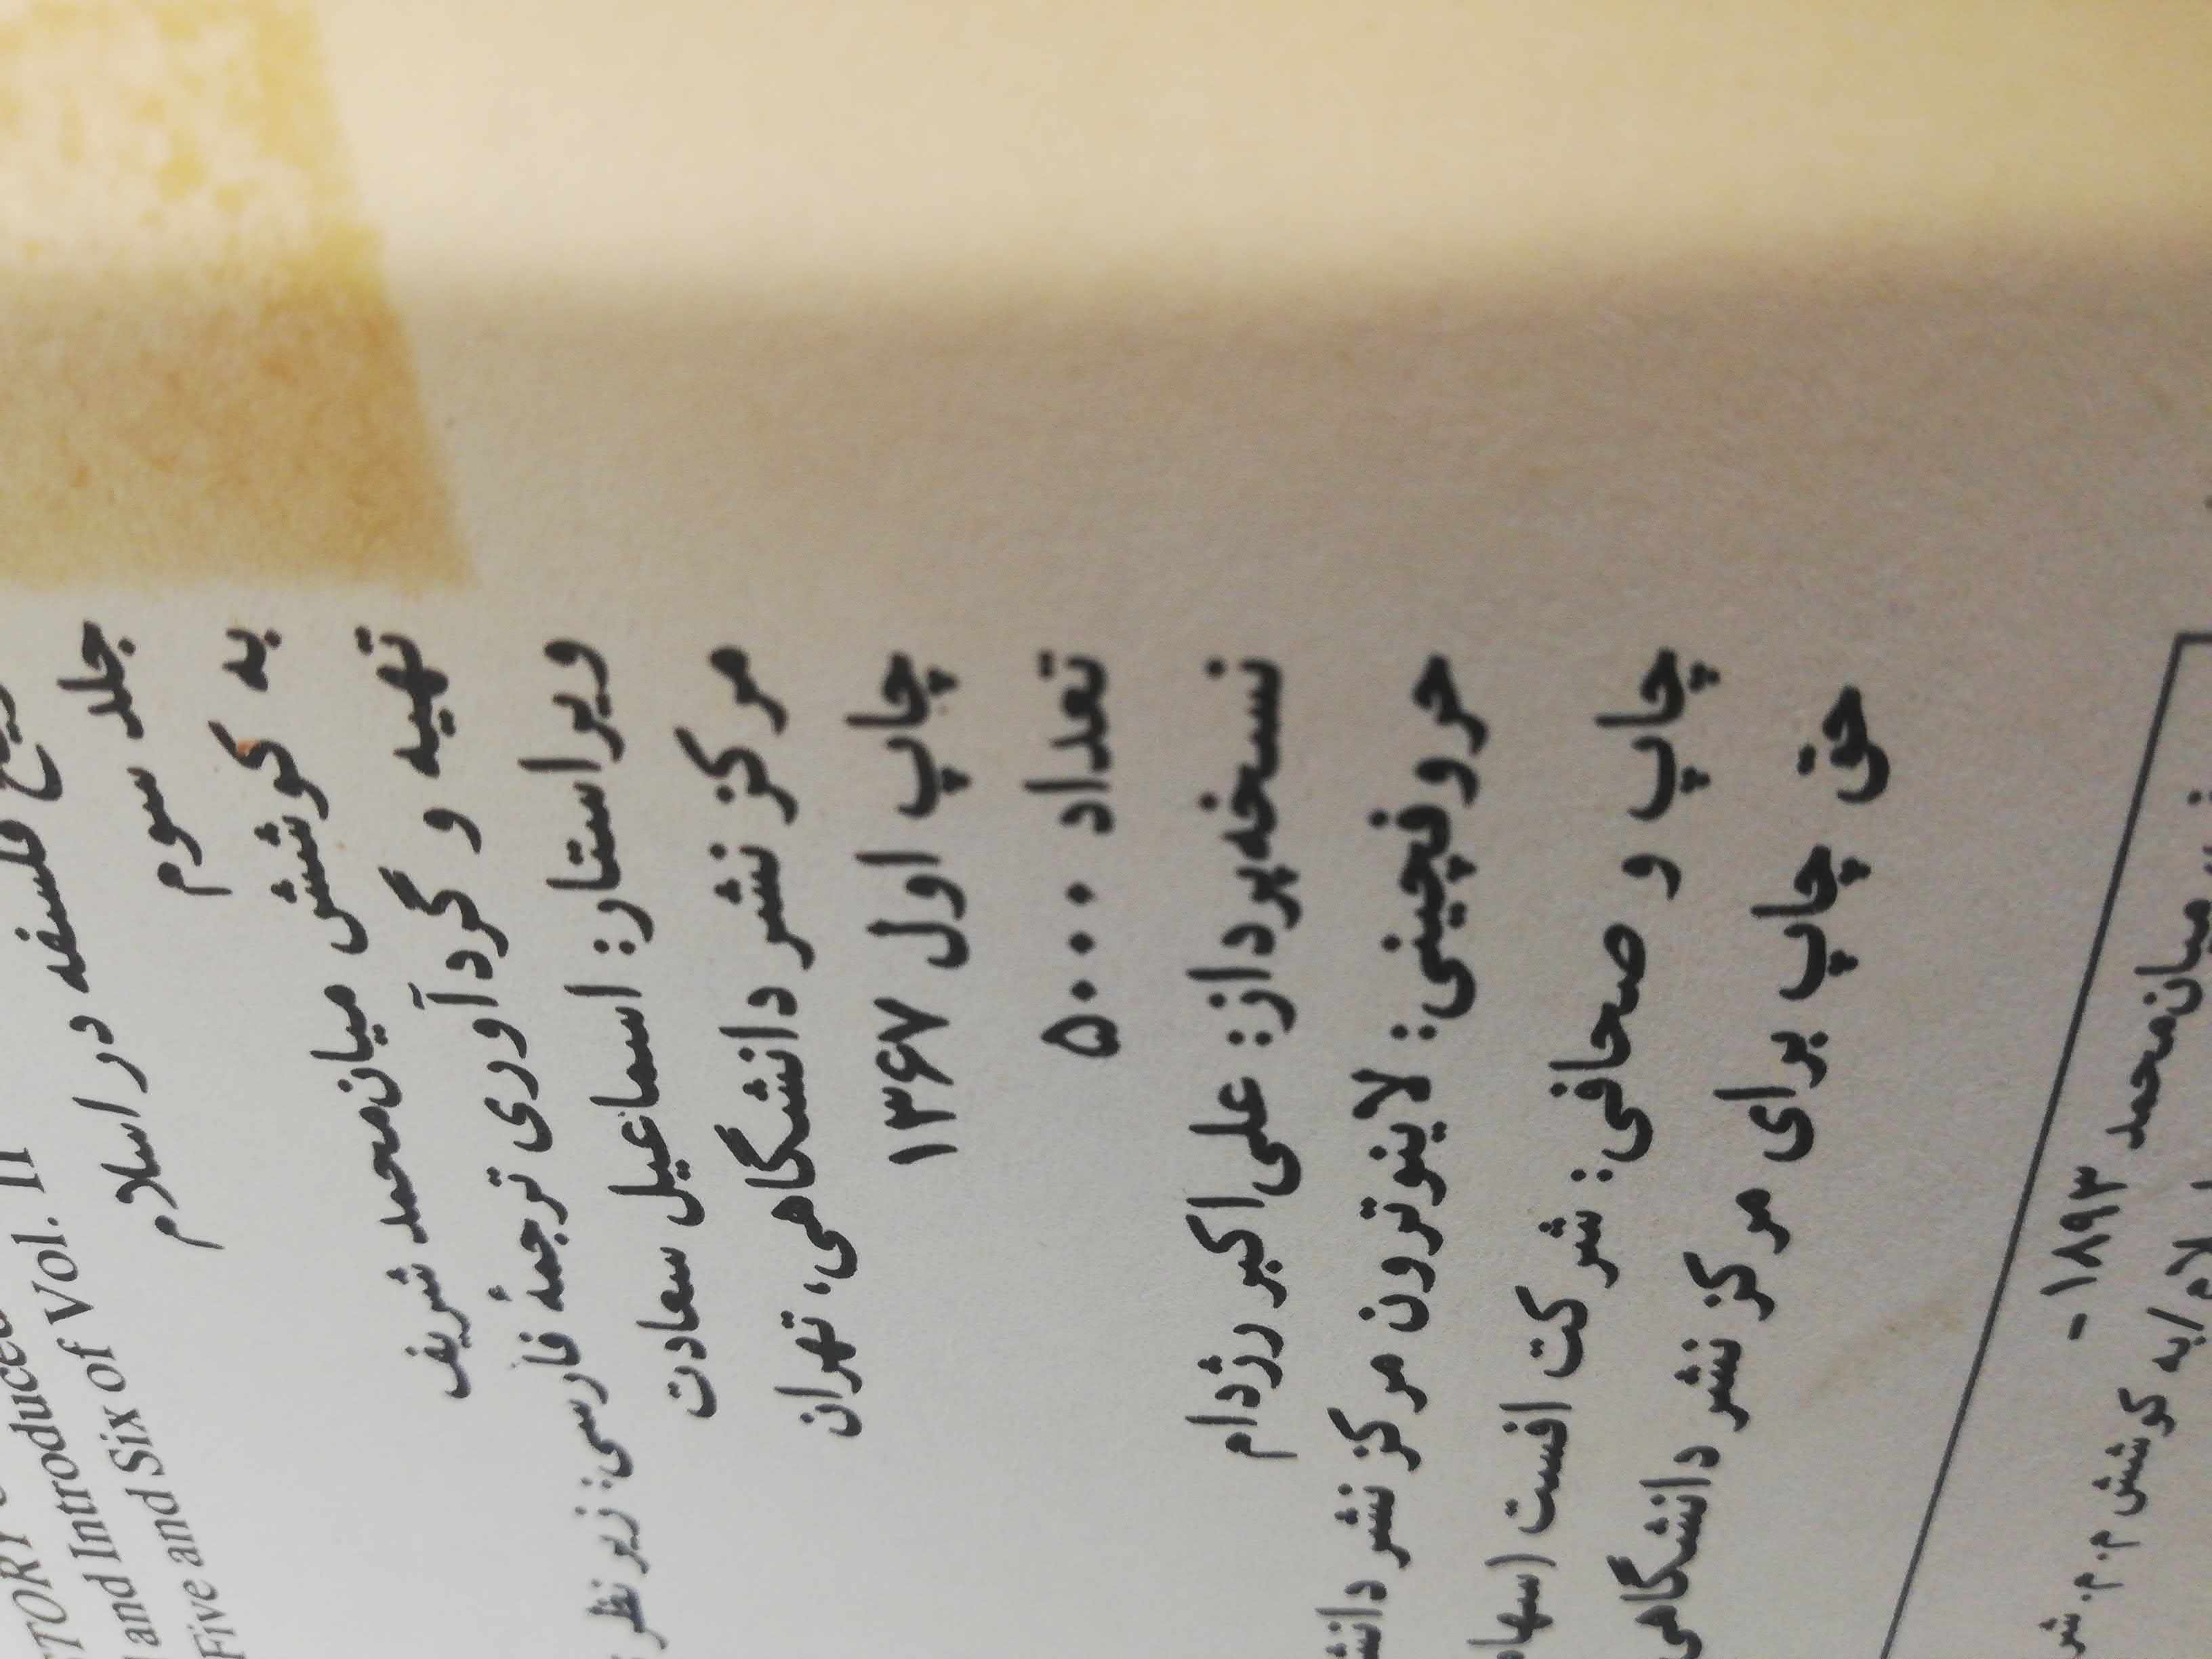 TORY
and Introduced
and Six of Vol. II
Five and
فلسفه در اسلام
جلد سوم
به کوشش میان‌محمد شریف
تهیه و گردآوری ترجمهٔ فارسی: زیر نظر
ویراستار: اسماعیل سعادت
مرکز نشر دانشگاهی، تهران
چاپ اول ۱۳۶۷
تعداد ۵۰۰۰
نسخه‌پرداز: علی‌اکبر رژدام
حروفچینی: لاینوترون مرکز نشر
چاپ و صحافی: شرکت افست
حق چاپ برای مرکز نشر دانشگاهی
میان‌محمد ۱۸۹۳ -
/به کوشش م.م.